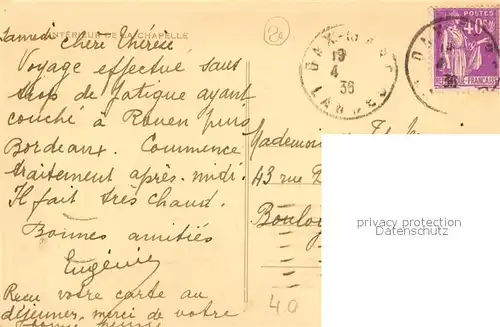 INTÉRIEUR DE LA CHAPELLE
Samedi chère Thérèse
Voyage effectué sans
trop de fatigue ayant
couché à Rouen puis
Bordeaux. Commence
traitement après-midi
Il fait très chaud.
Bonnes amitiés
Eugénie
Reçu votre carte au
déjeuner, merci de votre
20
DAX-GARE
19
4
36
LANDES
POSTES
40c
FRANÇAISE
36
43 rue
40
privacy protection
for AK-Ansichtskarten.de